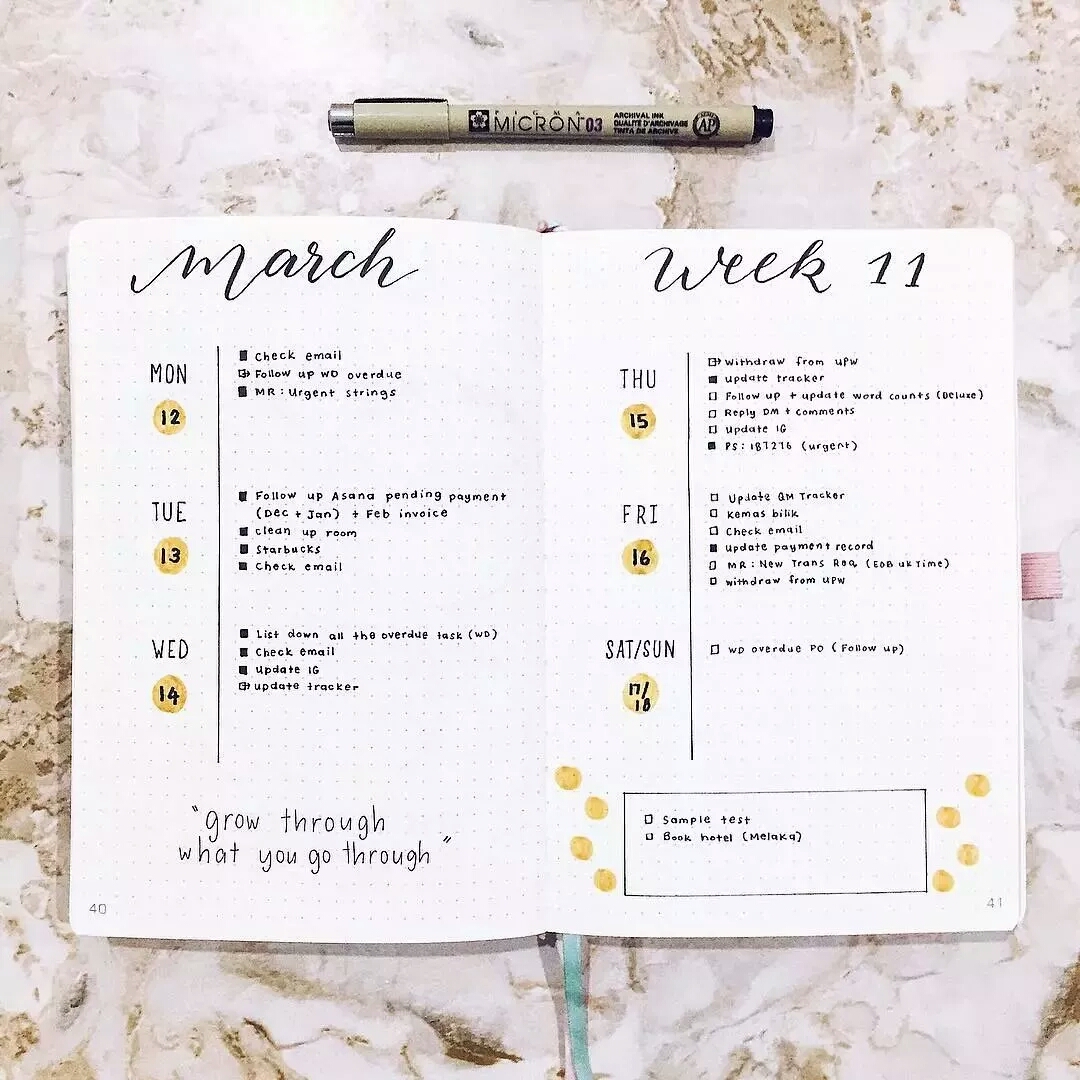 PIGMA
MICRON 03
ARCHIVAL INK
QUALITÉ D'ARCHIVAGE
TINTA DE ARCHIVE
AP
March
MON
12
Check email
Follow up WD overdue
MR: Urgent strings
TUE
13
Follow up Asana pending payment
(Dec + Jan) + Feb invoice
clean up room
Starbucks
Check email
WED
14
List down all the overdue task (WD)
Check email
Update IG
update tracker
"grow through
what you go through"
40
Week 11
THU
15
Withdraw from UPW
update tracker
Follow up + update word counts (Deluxe)
Reply DM + comments
update IG
PS: 187276 (urgent)
FRI
16
Update QM Tracker
Kemas bilik
Check email
update payment record
MR: New Trans Req (EOB UK Time)
withdraw from UPW
SAT/SUN
17/
18
WD overdue PO (Follow up)
Sample test
Book hotel (Melaka)
41